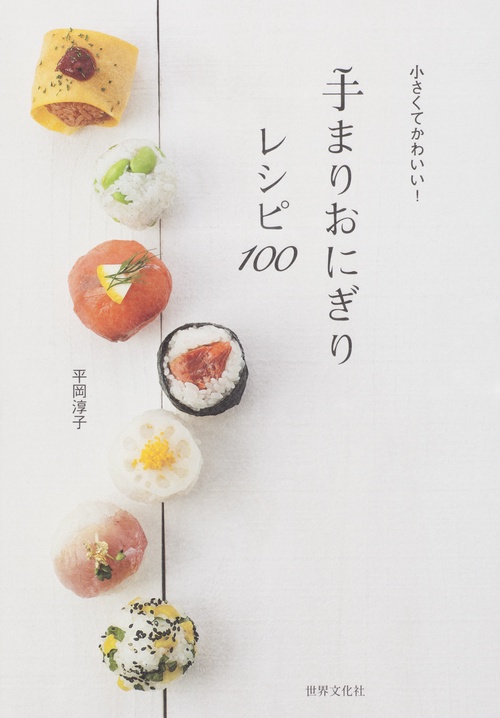 小さくてかわいい！
手まりおにぎり
レシピ
100
平岡淳子
世界文化社